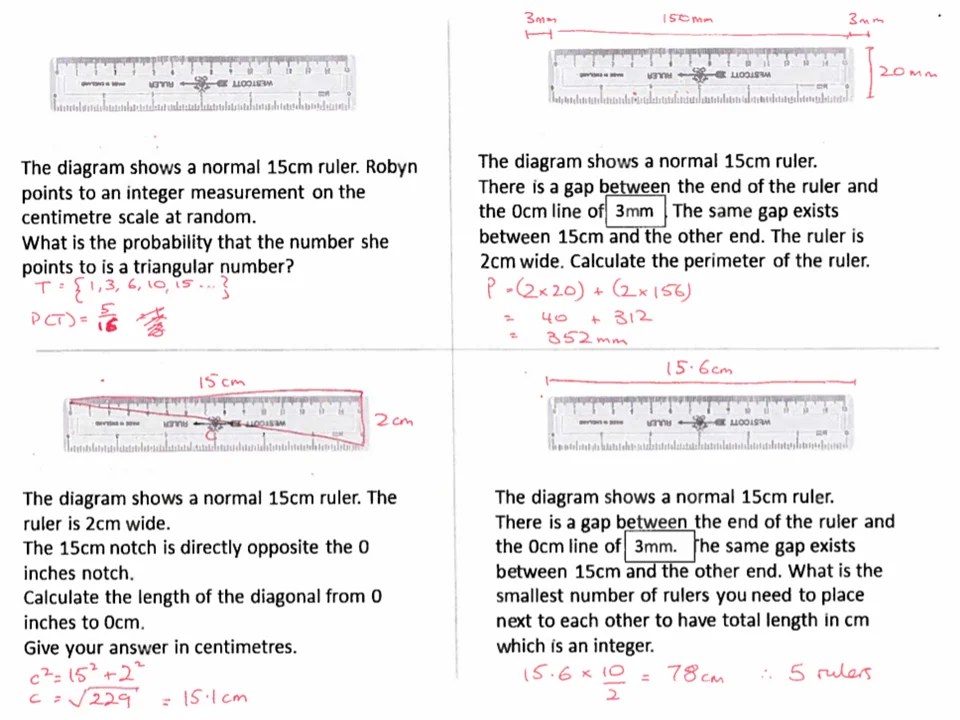 The diagram shows a normal 15cm ruler. Robyn
points to an integer measurement on the
centimetre scale at random.
What is the probability that the number she
points to is a triangular number?
T = { 1, 3, 6, 10, 15 ... }
P(T) = 5/16
3mm 150mm 3mm
20mm
The diagram shows a normal 15cm ruler.
There is a gap between the end of the ruler and
the 0cm line of 3mm . The same gap exists
between 15cm and the other end. The ruler is
2cm wide. Calculate the perimeter of the ruler.
P = (2 x 20) + (2 x 156)
= 40 + 312
= 352mm
15cm
2cm
c
The diagram shows a normal 15cm ruler. The
ruler is 2cm wide.
The 15cm notch is directly opposite the 0
inches notch.
Calculate the length of the diagonal from 0
inches to 0cm.
Give your answer in centimetres.
c² = 15² + 2²
c = √229 = 15.1cm
15.6cm
The diagram shows a normal 15cm ruler.
There is a gap between the end of the ruler and
the 0cm line of 3mm. The same gap exists
between 15cm and the other end. What is the
smallest number of rulers you need to place
next to each other to have total length in cm
which is an integer.
15.6 x 10/2 = 78cm ∴ 5 rulers